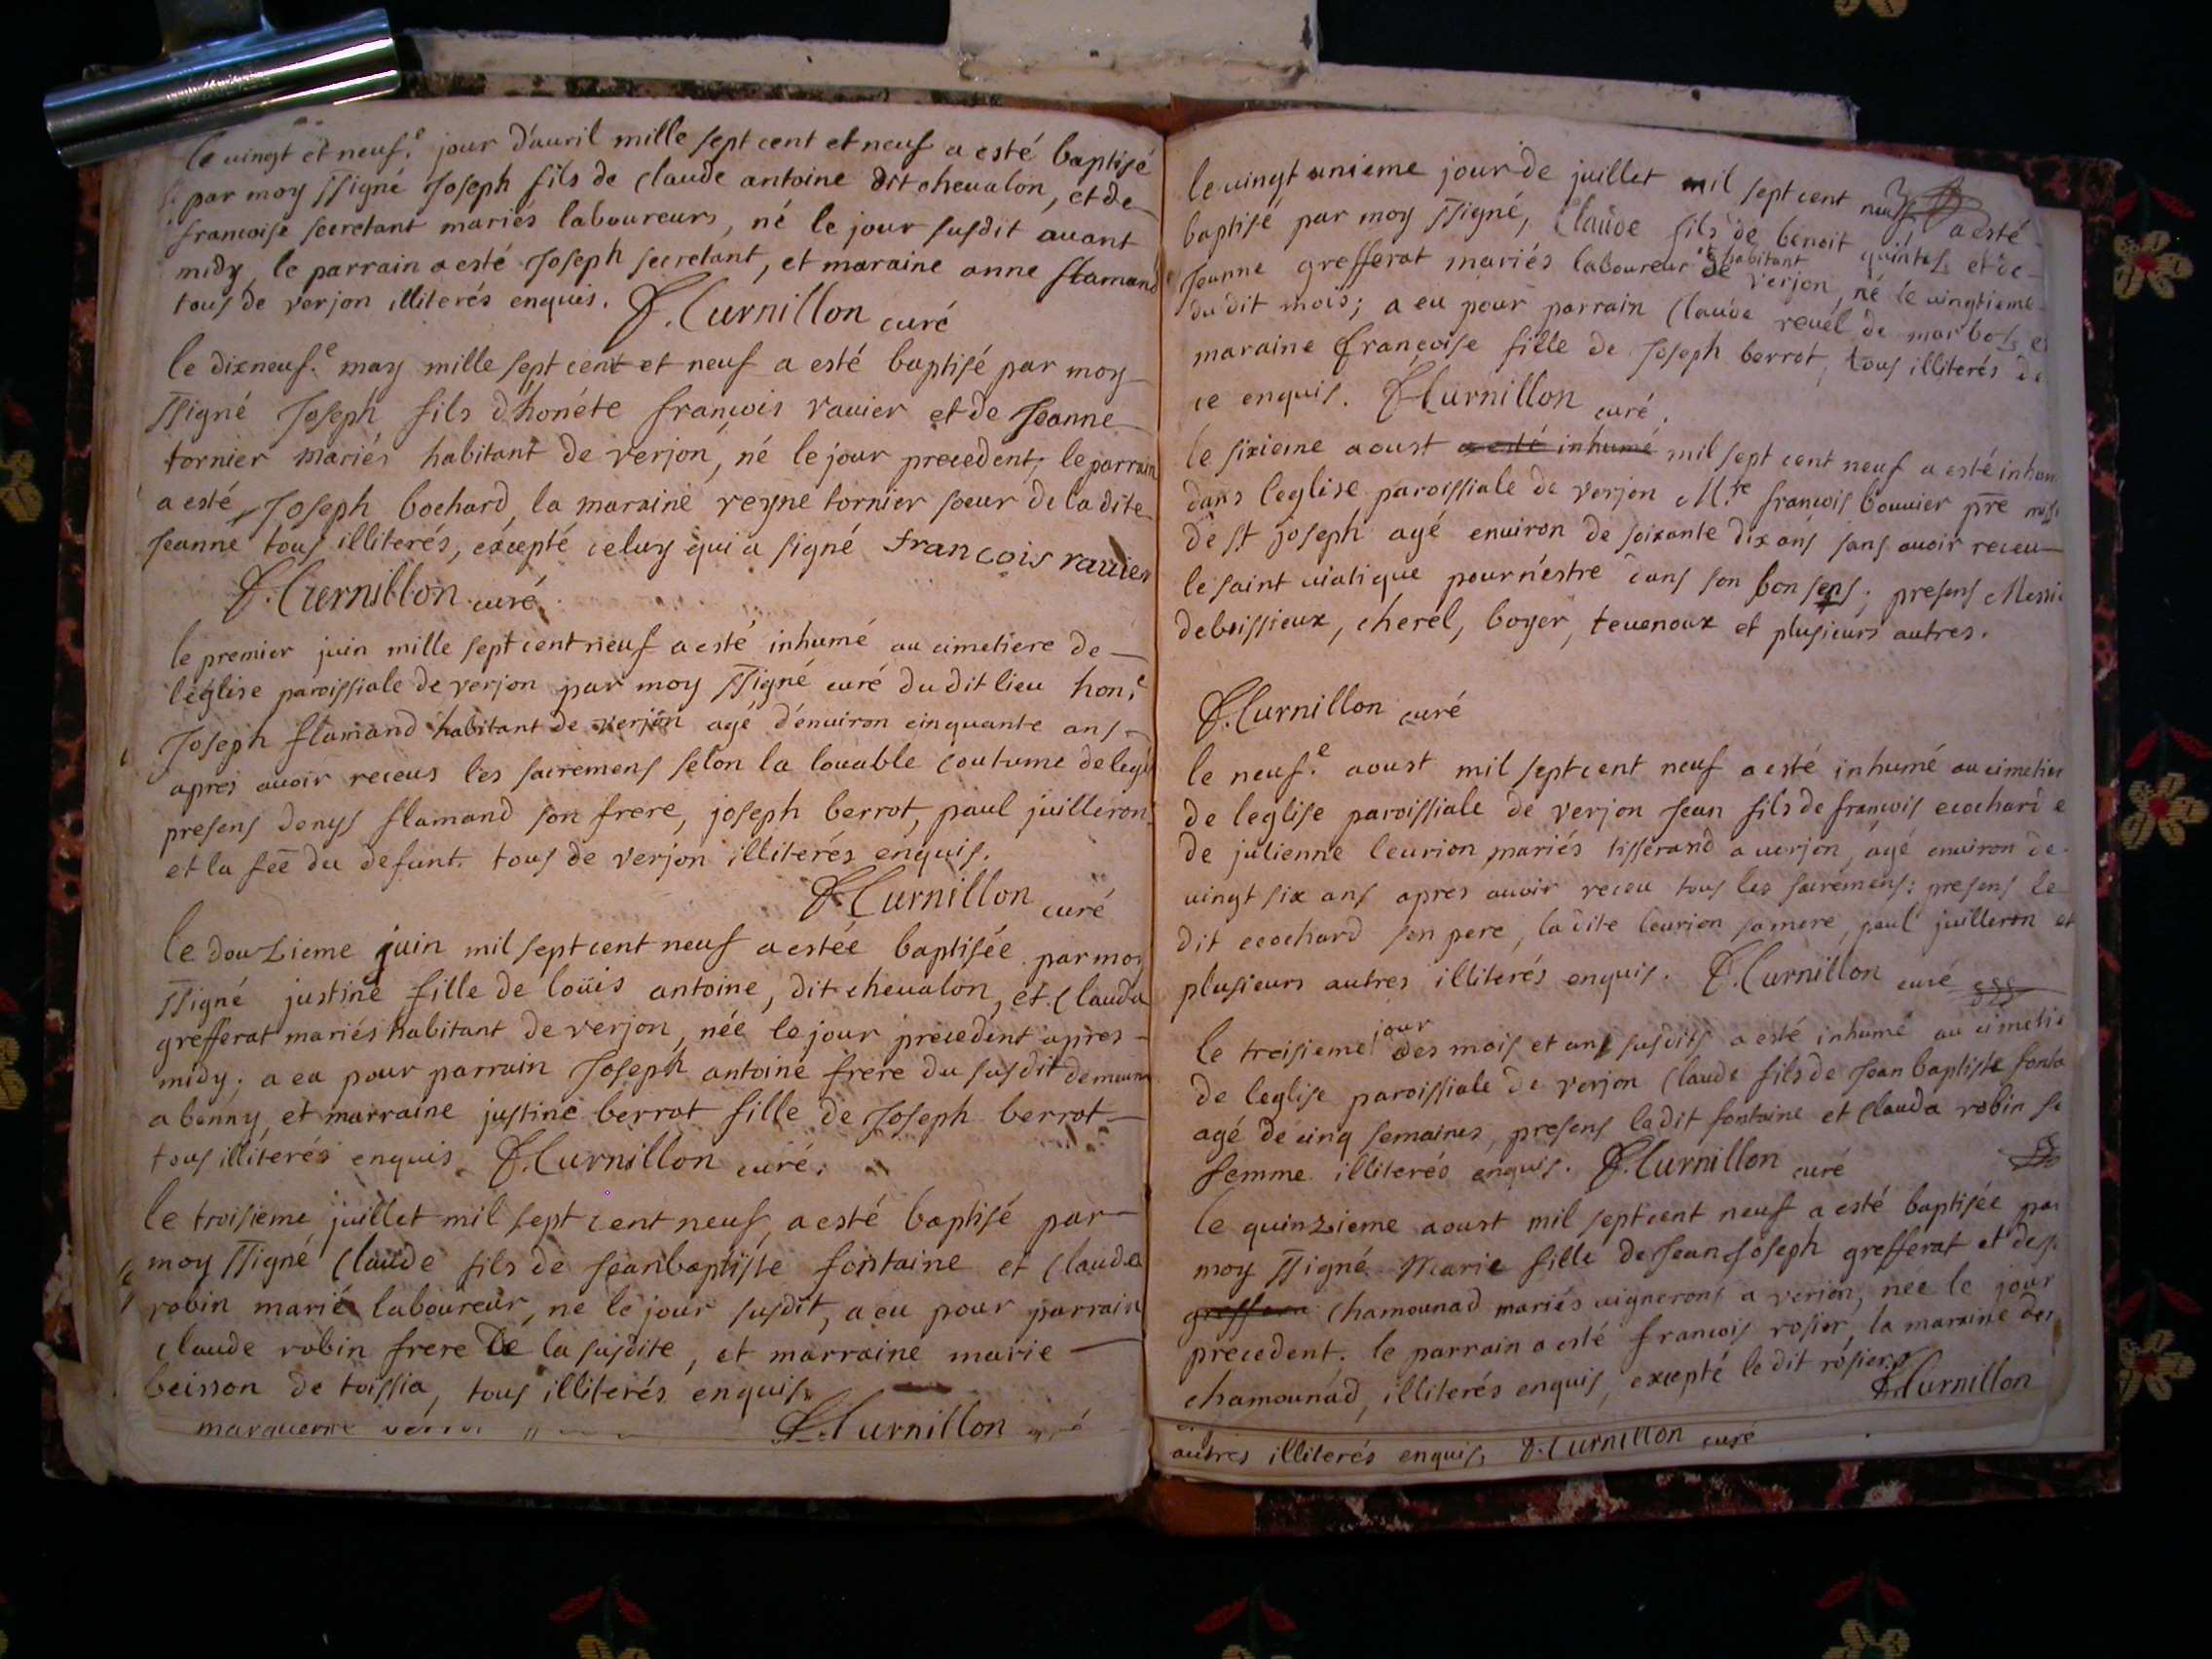 le vingt et neuf.e jour d'auril mille sept cent et neuf a esté baptisé
par moy ssigné Joseph fils de claude antoine dit cheualon, et de
francoise secretant mariés laboureurs, né le jour susdit auant
midy, le parrain a esté Joseph secretant, et maraine anne flamand
tous de verjon illiterés enquis. F. Curnillon curé
le dixneuf.e may mille sept cent et neuf a esté baptisé par moy
ssigné Joseph fils d'honéte francois rauier et de Jeanne
tornier mariés habitant de verjon, né le jour precedent; le parrain
a esté Joseph bochard la maraine reyne tornier soeur de la dite
Jeanne tous illiterés, éxcepté celuy qui a signé francois rauier
F. Curnillon curé.
le premier juin mille sept cent neuf a esté inhumé au cimetiere de
léglise paroissiale de verjon par moy ssigné curé du dit lieu hon.e
Joseph flamand habitant de verjon agé d'enuiron cinquante ans
apres auoir receus les sacremens selon la louable coutume de legli
presens denys flamand son frere, joseph berrot, paul juilleron
et la fēe du defunt. tous de verjon illiterés enquis.
F. Curnillon curé
le douzieme juin mil sept cent neuf a estée baptisée par moy
ssigné justine fille de loüis antoine, dit cheualon, et. clauda
grefferat mariés habitant de verjon, née le jour precedent apres
midy. a eu pour parrain Joseph antoine frere du susdit demeura
a benny, et marraine justine berrot fille de Joseph berrot
tous illiterés enquis F. Curnillon curé.
le troisieme juillet mil sept cent neuf, a esté baptisé par
moy ssigné claude fils de Jeanbaptiste fontaine et clauda
robin mariés laboureur, né le jour susdit, a eu pour parrain
claude robin frere de la susdite, et marraine marie
beisson de toissia, tous illiterés enquis
F. Curnillon curé
marguerite
le vingt unieme jour de juillet mil sept cent neuf, a esté
baptisé par moy ssigné, Claude fils de benoit quintal et de
Jeanne grefferat mariés laboureur et habitant de verjon, né le vingtieme
du dit mois; a eu pour parrain claude reuel de marbos et
maraine francoise fille de Joseph berrot, tous illiterés de
ce enquis. F. Curnillon curé.
le sixieme aoust a esté inhumé mil sept cent neuf a esté inhum
dans leglise paroissiale de verjon M.re francois bouuier prē miss
de st joseph agé enuiron de soixante dix ans sans auoir receu
le saint uiatique pour n'estre dans son bon sens; presens Messi
deboissieux, cherel, boyer, teuenoux et plusieurs autres.
F. Curnillon curé
le neuf.e aoust mil sept cent neuf a esté inhumé au cimetier
de leglise paroissiale de verjon Jean fils de francois ecochard e
de julienne leurion mariés tisserand a uerjon, agé enuiron de
uingt six ans apres auoir receu tous les sacremens: presens le
dit ecochard son pere, la dite leurion sa mere, paul juilleron et
plusieurs autres illiterés enquis. F. Curnillon curé
le treisieme jour des mois et ans susdits a esté inhumé au cimetie
de leglise paroissiale de verjon claude fils de Jean baptiste fonta
agé de cinq semaines, presens ladit fontaine et clauda robin sa
femme illiterés enquis. F. Curnillon curé
le quinzieme aoust mil sept cent neuf a esté baptisée par
moy ssigné Marie fille de Jean Joseph grefferat et de
chamounad mariés uignerons a verjon, née le jour
precedent. le parrain a esté francois rosier, la maraine
chamounad, illiterés enquis, excepté le dit rosier.
F. Curnillon
autres illiterés enquis, F. Curnillon curé